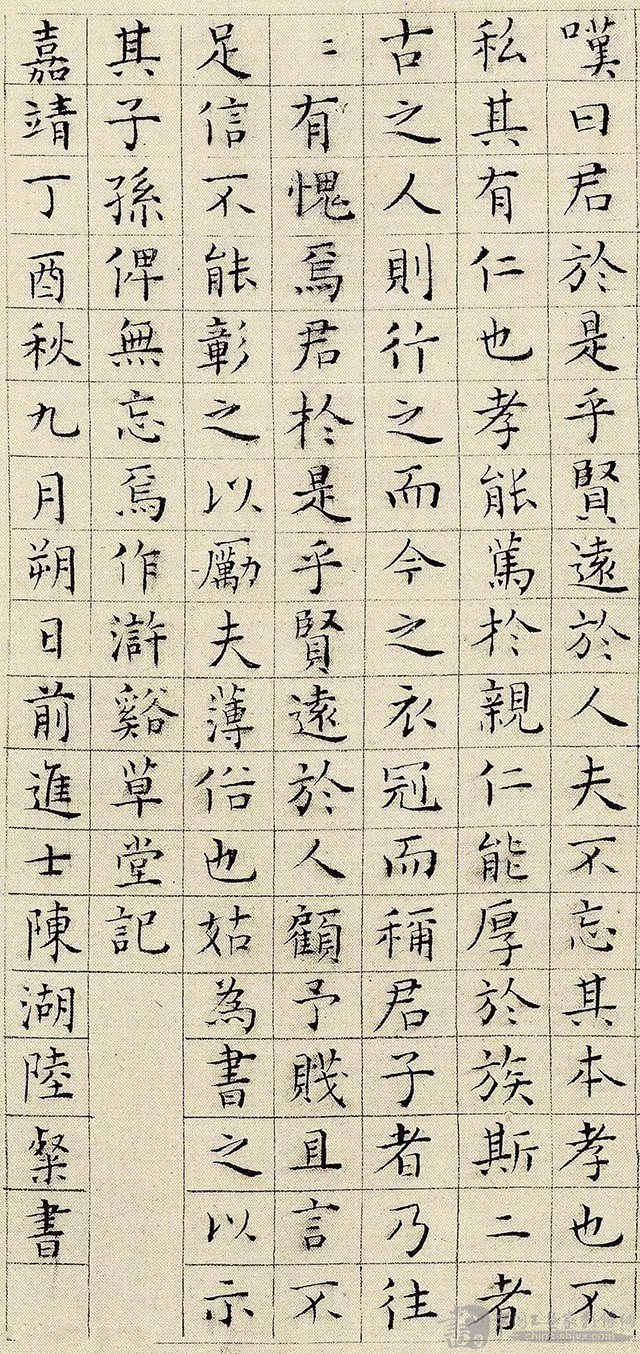 嘆曰君於是乎賢遠於人夫不忘其本孝也不
私其有仁也孝能篤於親仁能厚於族斯二者
古之人則行之而今之衣冠而稱君子者乃往
〻有愧焉君於是乎賢遠於人顧予賤且言不
足信不能彰之以勵夫薄俗也姑為書之以示
其子孫俾無忘焉作滸谿草堂記
嘉靖丁酉秋九月朔日前進士陳湖陸粲書